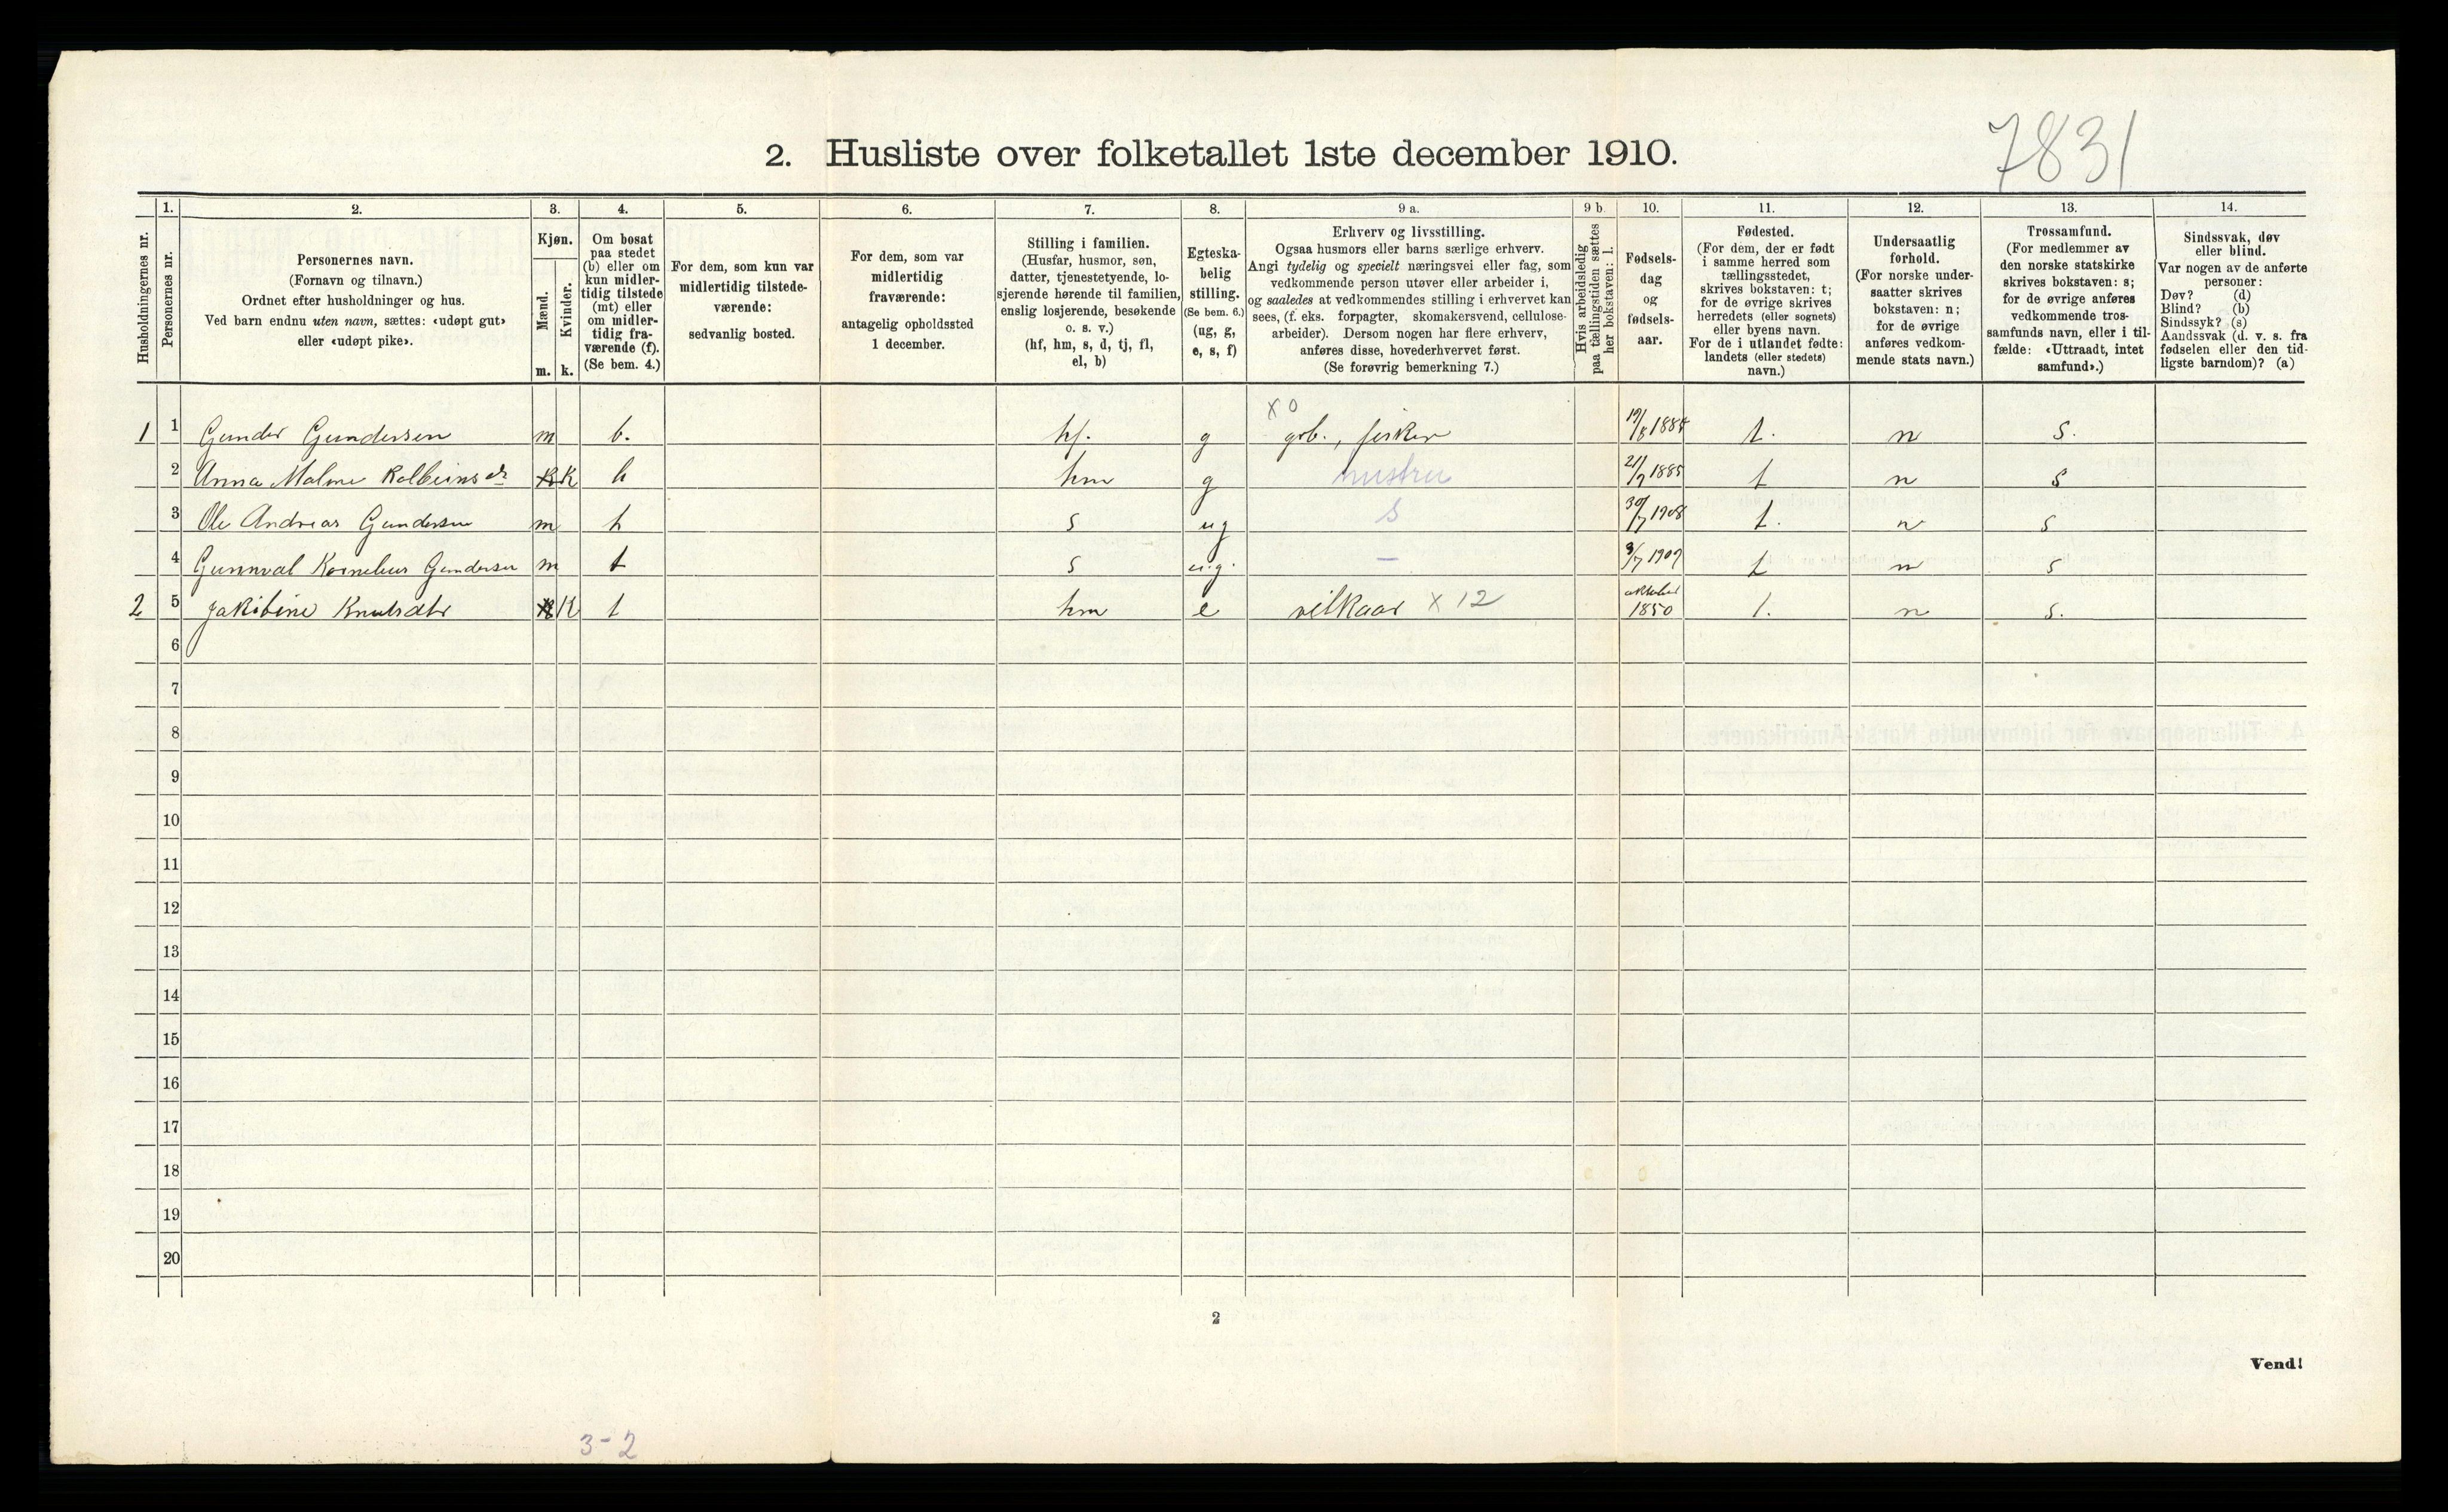 7831
2. Husliste over folketallet 1ste december 1910.
Husholdningernes nr.
1.
Personernes nr.
2.
Personernes navn.
(Fornavn og tilnavn.)
Ordnet efter husholdninger og hus.
Ved barn endnu uten navn, sættes: «udøpt gut»
eller «udøpt pike».
3.
Kjøn.
Mænd.
Kvinder.
m. k.
4.
Om bosat
paa stedet
(b) eller om
kun midler-
tidig tilstede
(mt) eller
om midler-
tidig fra-
værende (f).
(Se bem. 4.)
5.
For dem, som kun var
midlertidig tilstede-
værende:
sedvanlig bosted.
6.
For dem, som var
midlertidig
fraværende:
antagelig opholdssted
1 december.
7.
Stilling i familien.
(Husfar, husmor, søn,
datter, tjenestetyende, lo-
sjerende hørende til familien,
enslig losjerende, besøkende
o. s. v.)
(hf, hm, s, d, tj, fl,
el, b)
8.
Egteska-
belig
stilling.
(Se bem. 6.)
(ug, g,
e, s, f)
9 a.
Erhverv og livsstilling.
Ogsaa husmors eller barns særlige erhverv.
Angi tydelig og specielt næringsvei eller fag, som
vedkommende person utøver eller arbeider i,
og saaledes at vedkommendes stilling i erhvervet kan
sees, (f. eks. forpagter, skomakersvend, cellulose-
arbeider). Dersom nogen har flere erhverv,
anføres disse, hovederhvervet først.
(Se forøvrig bemerkning 7.)
9 b
Hvis arbeidsledig
paa tællingstiden sættes
her bokstaven: l.
10.
Fødsels-
dag
og
fødsels-
aar.
11.
Fødested.
(For dem, der er født
i samme herred som
tællingsstedet,
skrives bokstaven: t;
for de øvrige skrives
herredets (eller sognets)
eller byens navn.
For de i utlandet fødte:
landets (eller stedets)
navn.)
12.
Undersaatlig
forhold.
(For norske under-
saatter skrives
bokstaven: n;
for de øvrige
anføres vedkom-
mende stats navn.)
13.
Trossamfund.
(For medlemmer av
den norske statskirke
skrives bokstaven: s;
for de øvrige anføres
vedkommende tros-
samfunds navn, eller i til-
fælde: «Uttraadt, intet
samfund».)
14.
Sindssvak, døv
eller blind.
Var nogen av de anførte
personer:
Døv? (d)
Blind? (b)
Sindssyk? (s)
Aandssvak (d. v. s. fra
fødselen eller den tid-
ligste barndom)? (a)
x o
1 1 Gunder Gundersen m b. hf. g grb., fisker t. n s.
2 Anna Malme Kolbeinsdr K hm g hustru 21/2 1885 t n s
3 Ole Andreas Gundersen m s ug s 30/7 1908 t. n s
4 Gunnval Kornelius Gundersen m t s u.g. — t n s
2 5 Jakibine Knutsdtr K t hm e vilkaar x 12 oktober 1850 t. n s.
6
7
8
9
10
11
12
13
14
15
16
17
18
19
20
2
Vend!
3-2